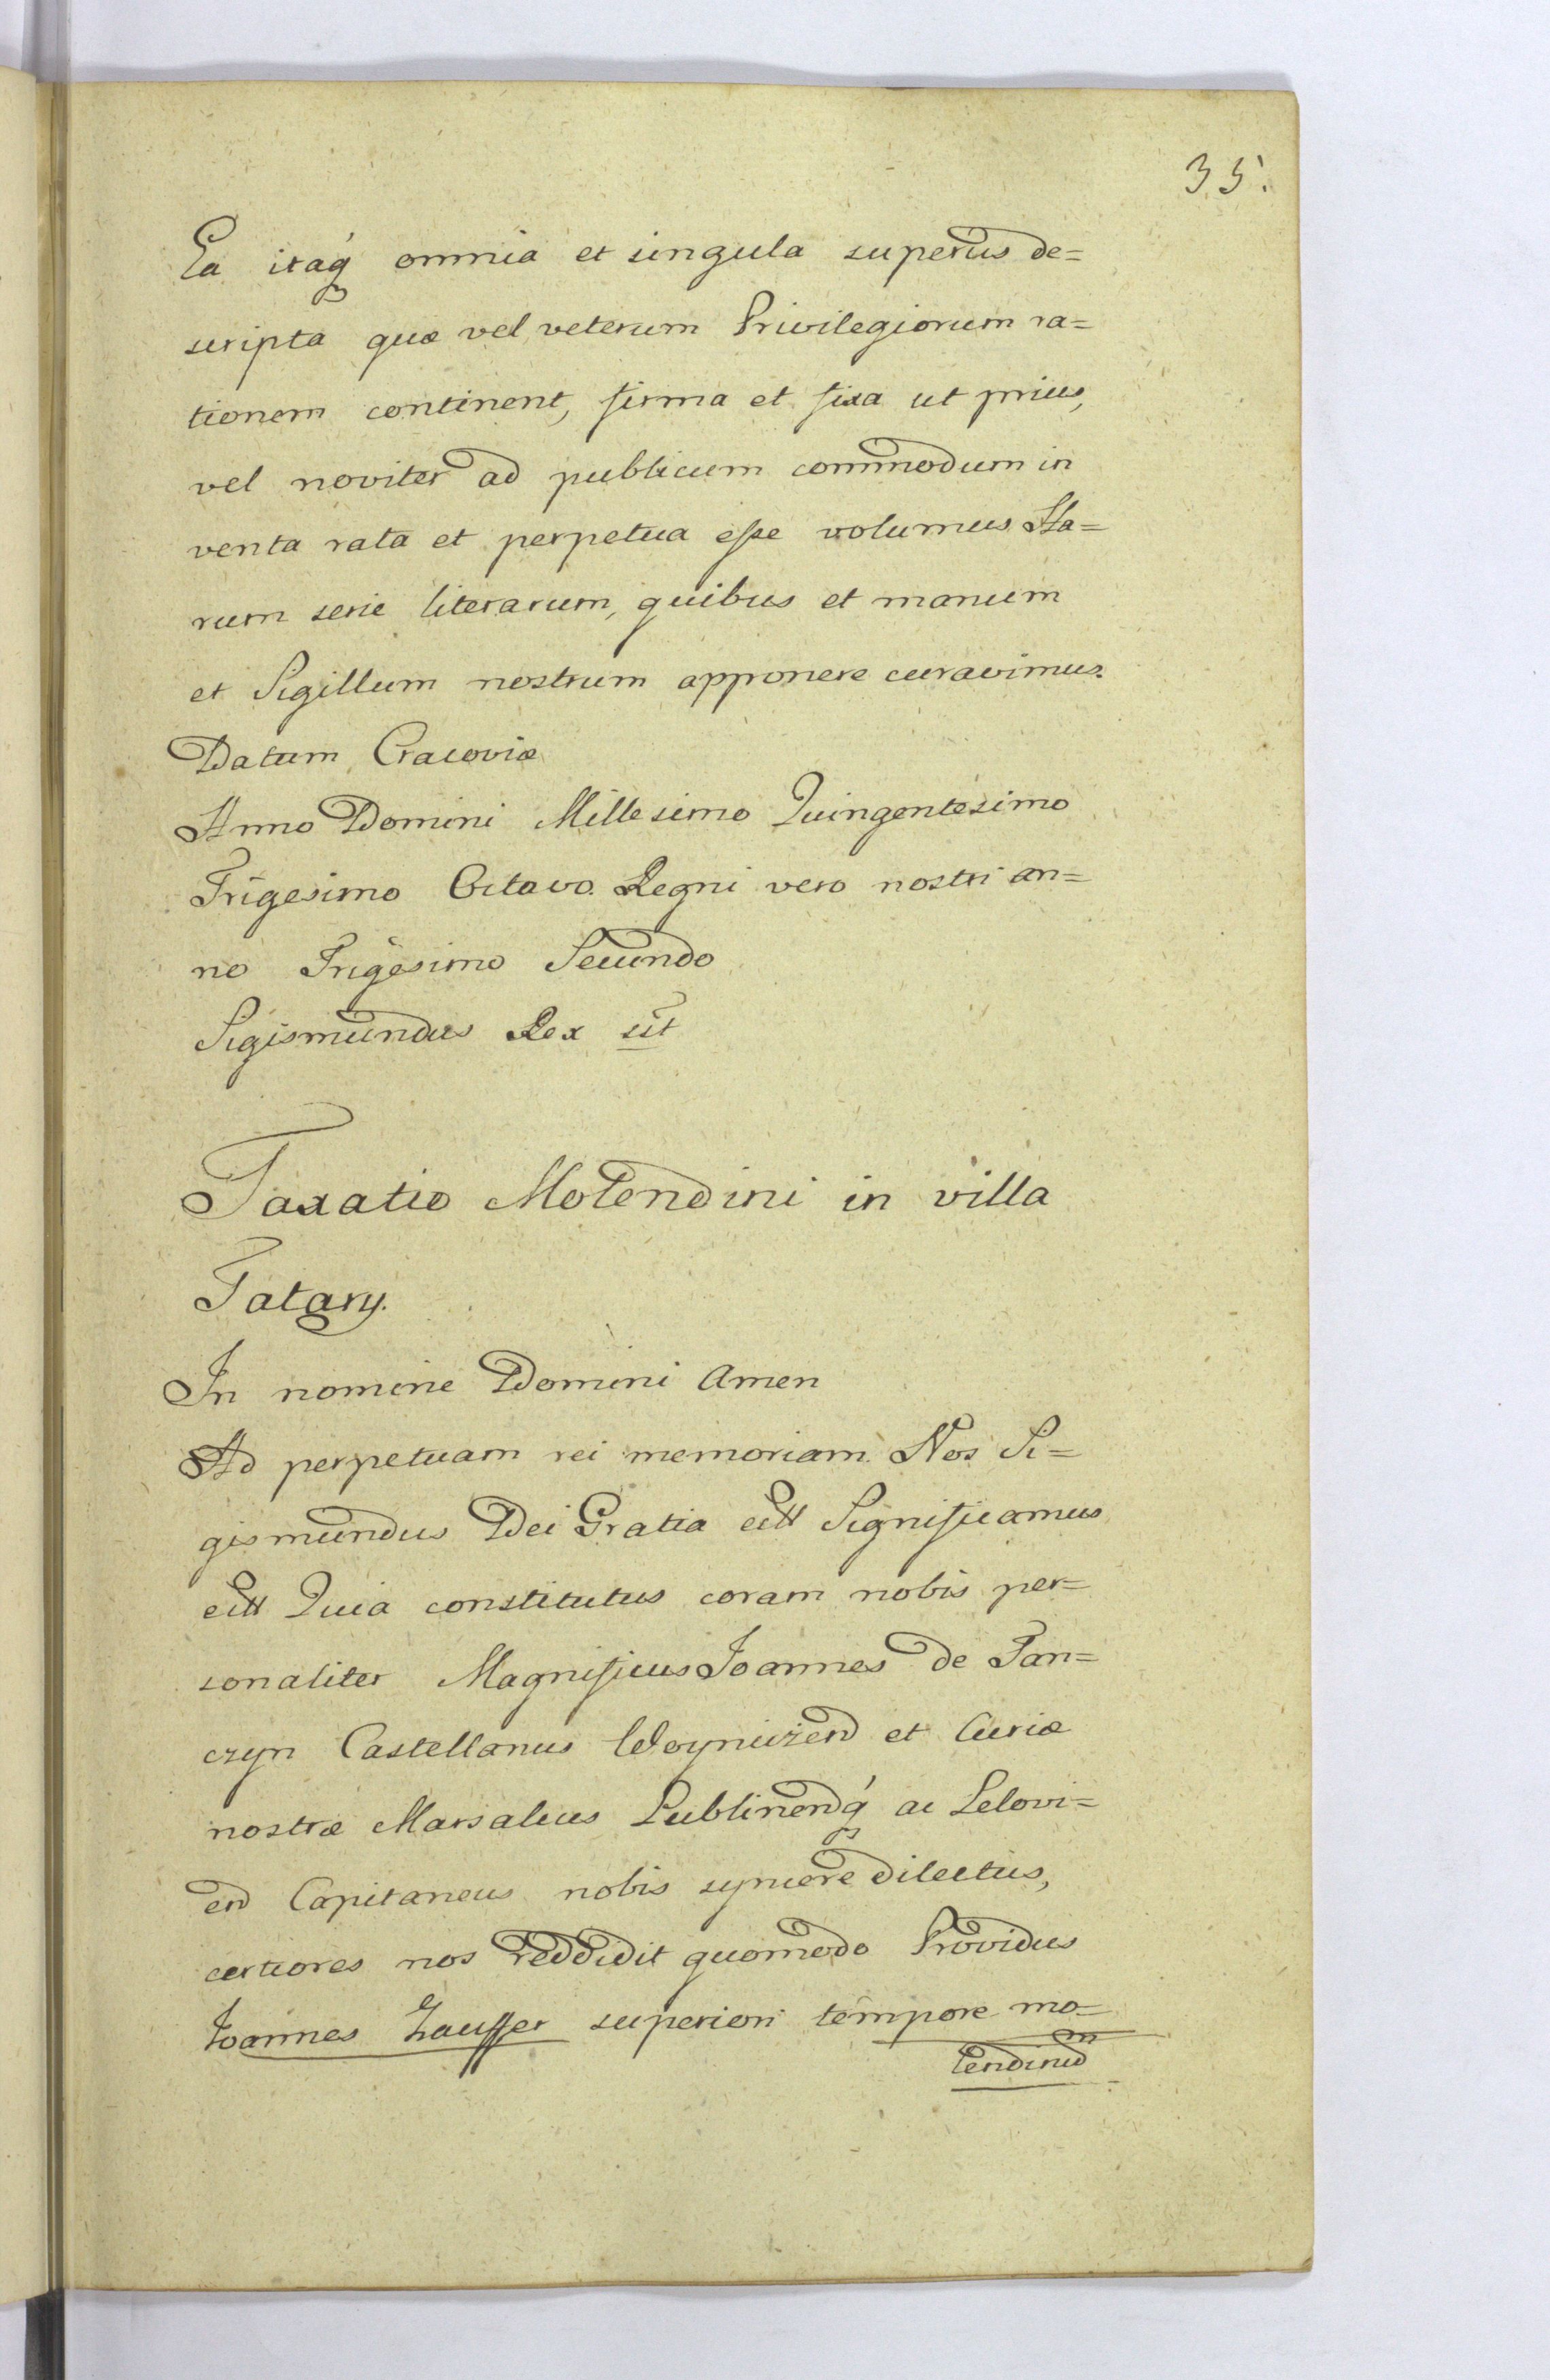 35.
Ea itaq́ omnia et singula superius de=
scripta quæ vel veterum Privilegiorum ra=
tionem continent, firma et fixa ut prius,
vel noviter ad publicum commodum in
venta rata et perpetua eſse volumus Ha=
rum serie literarum, quibus et manum
et Sigillum nostrum apponere curavimus.
Datum Cracoviæ
Anno Domini Millesimo Quingentesimo
Trigesimo Octavo. Regni vero nostri an=
no Trigesimo Secundo
Sigismundus Rex sst
Taxatio Molendini in villa
Tatary.
In nomine Domini Amen
Ad perpetuam rei memoriam. Nos Si=
gismundus Dei Gratia ett Significamus
ett Quia constitutus coram nobis per=
sonaliter Magnificus Joannes de Tan=
czyn Castellanus Woyniczen et Curiæ
nostræ Marsalcus Lublinenq́ ac Lelovi=
en Capitaneus nobis syncere dilectus,
certiores nos reddidit quomodo Providus
Joannes Zauffer superiori tempore mo=
lendinum